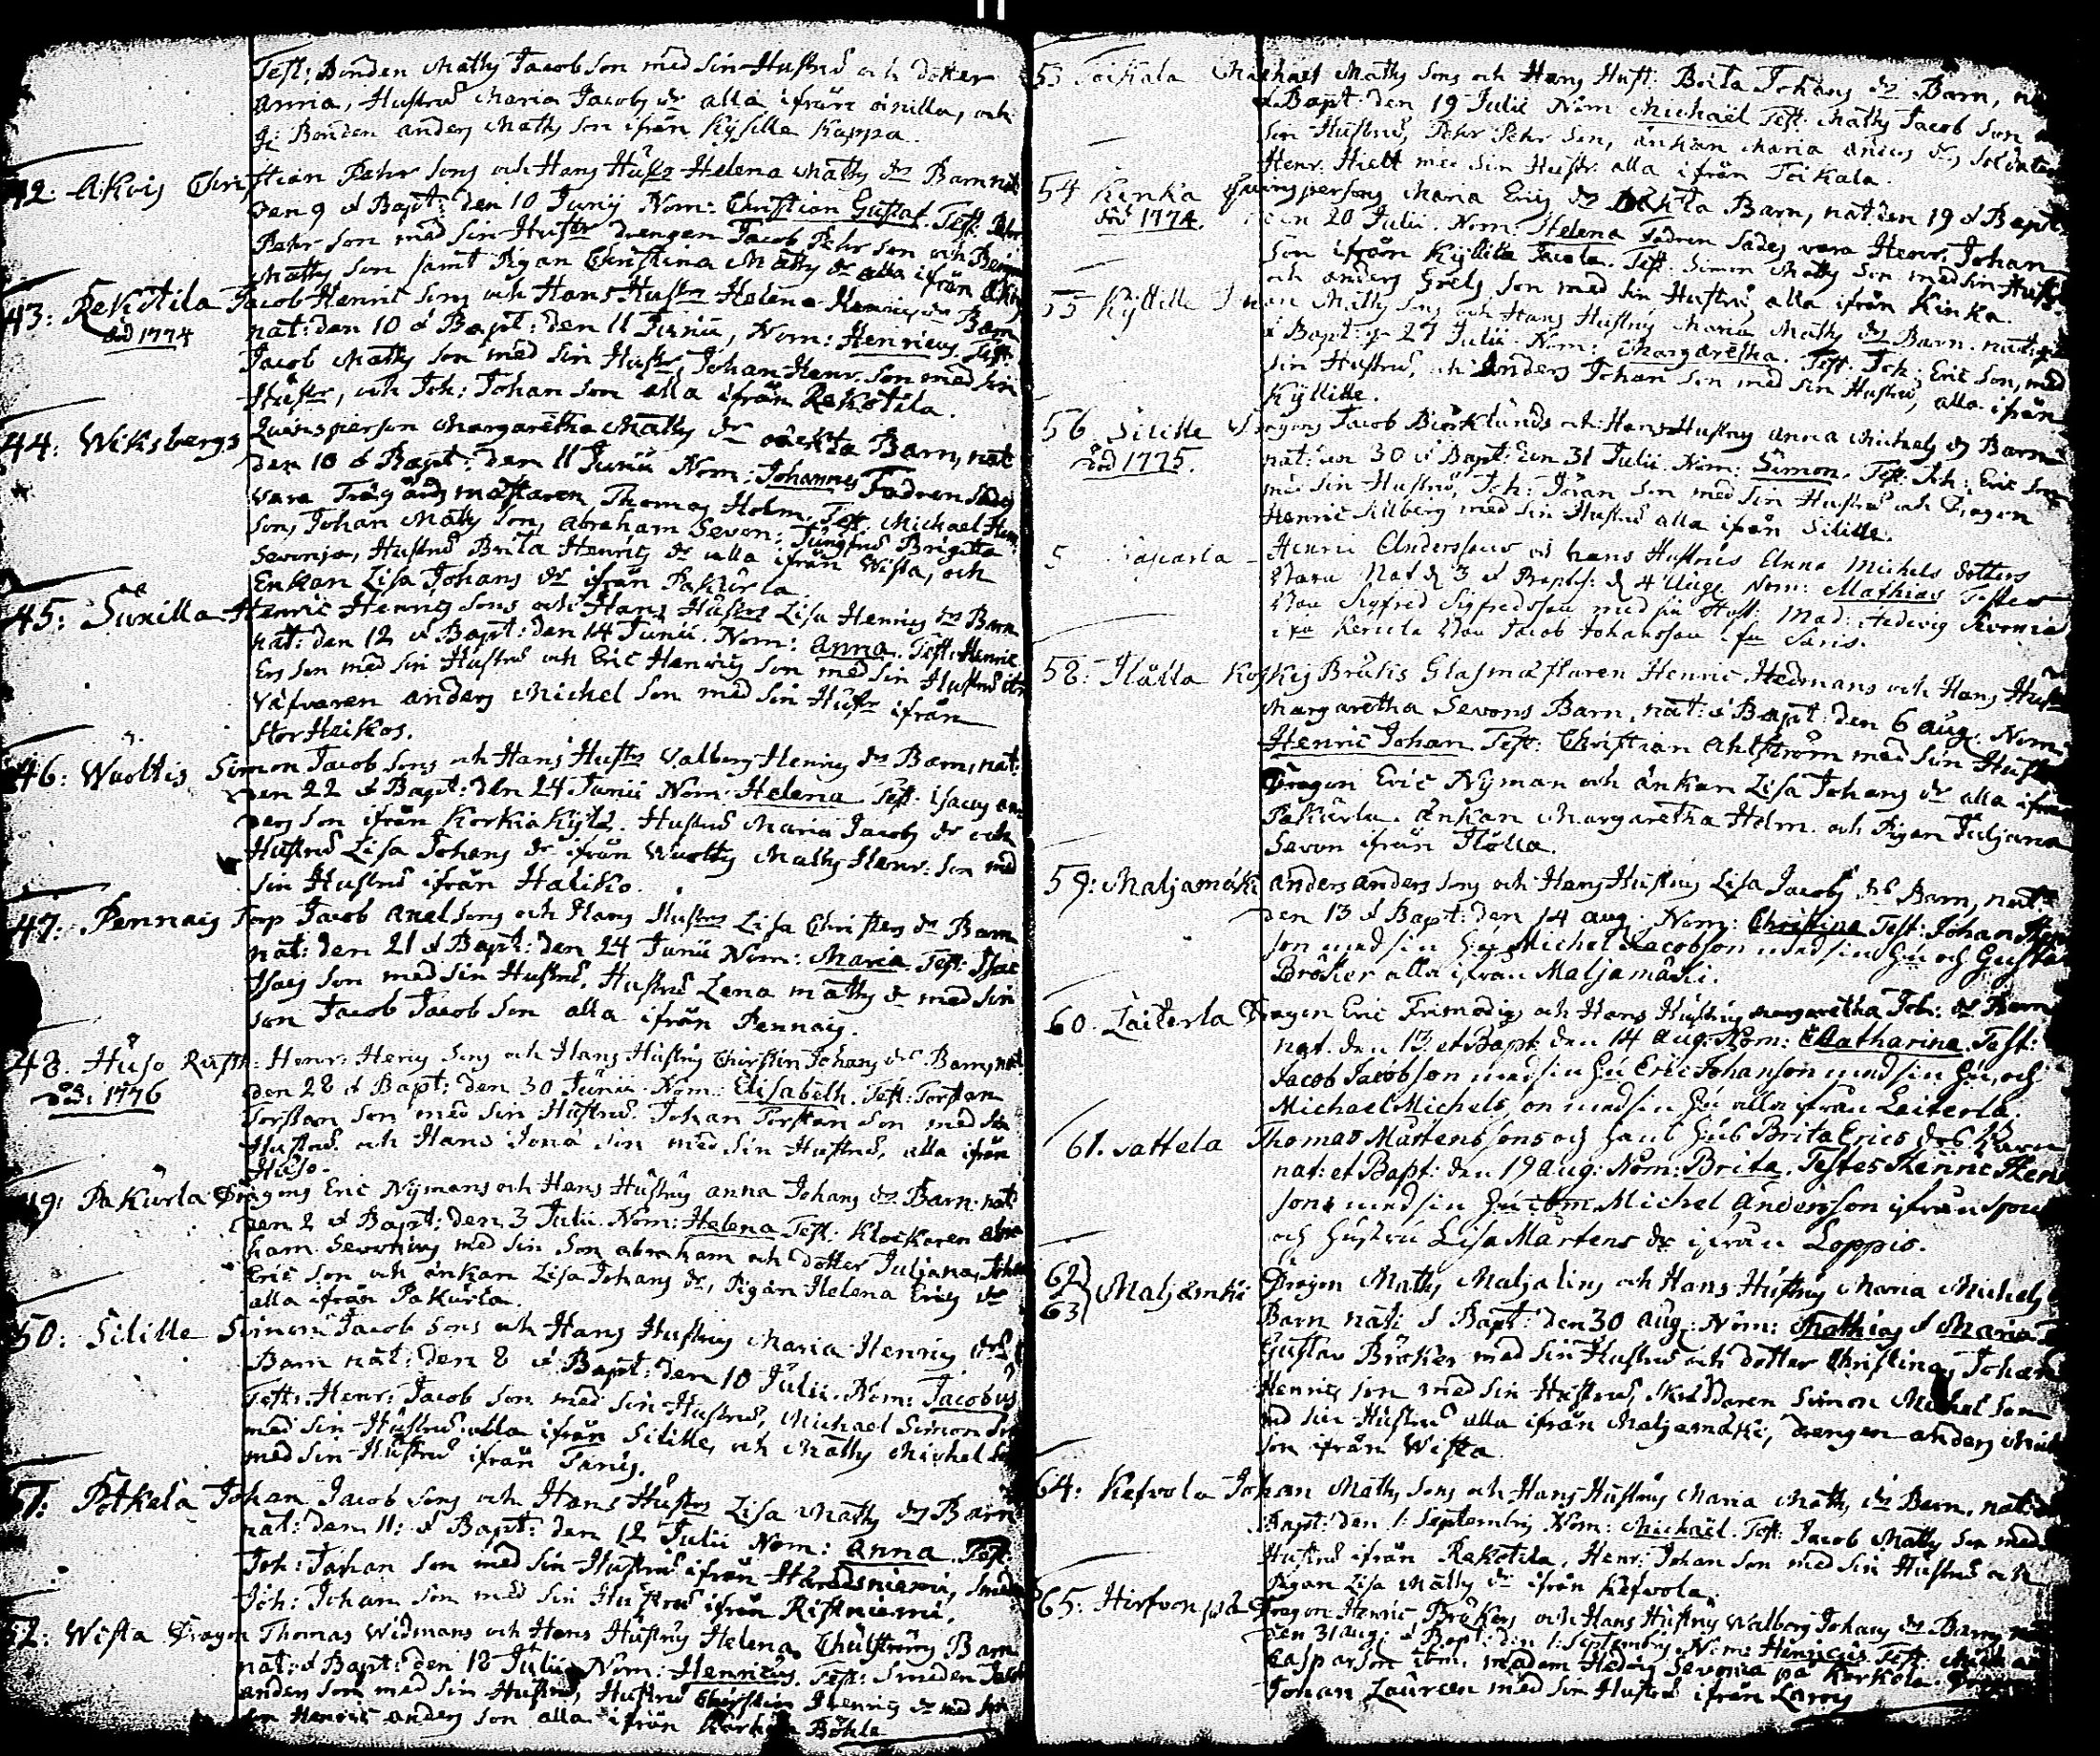 Test: Bonden Matts Jacob Son med Sin Hustru och dotter
Anna, Hustru Maria Jacobs dr alla ifrån Anilla, och
Bonden Anders Matts Son ifrån Kyſilla Kappa.
42. Akois Christian Pehr Sons och Hans Hustrs Helena Matts drs Barn nat:
Den 9 & Bapt: den 10 Junij Nom: Christian Gustaf. Test: Pehr
Pehr Son med Sin Hustr drengen Jacob Pehr Son och Benja
Matts Son samt Pigan Christina Matts dr alla ifrån Akois
43: Rekotila Jacob Henric Sons och Hans Hustrs Helena Henrics drs Barn
död 1774 nat: den 10 & Bapt: den 11 Junii, Nom: Henricus Test:
Jacob Matts Son med Sin Hustr, Johan Henr. Son med Sin
Hustr, och Joh: Johan Son alla ifrån Rekotila.
44: Wiksbergs Quinsperson Margaretha Matts drs oäckta Barn, nat
den 10 & Bapt: den 11 Junii Nom: Johannes Fadren sades
vara Trägårds mästaren Thomas Holm, Test. Michael Henr:
Son, Johan Matts Son, Abraham Sevon, Jungfru Brigitta
Sevonia, Hustru Brita Henrics dr alla ifrån Wista, och
Enkan Lisa Johans dr ifrån Pakurla.
45: Suxilla Henric Henrics Sons och Hans Hustrs Lisa Henrics drs Barn
nat: den 12 & Bapt: den 14 Junii. Nom: Anna. Test: Henric
Ers Son med Sin Hustru och Eric Henrics Son med Sin Hustru
Väfvaren Anders Michel Son med Sin Hustr ifrån
Stor Heikos.
46: Wuoltis Simon Jacob Sons och Hans Hustrs Valborg Henrics drs Barn, nat:
Den 22 & Bapt: den 24 Junii Nom: Helena Test: Isacus An
ders Son ifrån Korkiakylä. Hustru Maria Jacobs dr och
Hustru Lisa Johans dr ifrån Wuoltis Matts Henr: Son med
Sin Hustru ifrån Haliko.
47: Pennais Torp Jacob Axel Sons och Hans Hustrs Lisa Christers drs Barn
nat: den 21 & Bapt: den 24 Junii Nom: Maria. Test: Isac
Isacs Son med Sin Hustru, Hustru Lena Matts dr med Sin
Son Jacob Jacob Son alla ifrån Pennais.
48. Huso Rusth: Henr: Henrics Sons och Hans Hustrus Chirstin Johans drs Barn, nat
död: 1776 den 28 & Bapt: den 30 Junii. Nom: Elisabeth. Test: Torstan
Torstan Son med Sin Hustru. Johan Torstan Son med Sin
Hustru och Hans Jona Son med Sin Hustru, alla ifrån
Huso.
49: Pakurla Dragons Eric Nymans och Hans Hustrus Anna Johans drs Barn. nat
den 2 & Bapt: den 3 Julii. Nom: Helena Test: Klockaren Abra
ham Sevonius med Sin Son Abraham och dotter Juliana, Johan
Eric Son och änkan Lisa Johans dr, Pigan Helena Erics dr
alla ifrån Pakurla.
50: Silille Simon Jacob Sons och Hans Hustrus Maria Henrics drs
Barn nat: den 8 & Bapt: den 10 Julii. Nom: Jacobus
Test: Henr: Jacob Son med Sin Hustru, Michael Simon Son
med Sin Hustru alla ifrån Silille, och Matts Michel Son
med Sin Hustru ifrån Taris.
51: Potkala Johan Jacob Sons och Hans Hustrs Lisa Matts drs Barn
nat: den 11: & Bapt: den 12 Julii Nom: Anna Test:
Joh: Johan Son med Sin Hustru ifrån
Joh: Johan Son med Sin Hustru ifrån Ristniemi.
52: Wista Dragon Thomas Widmans och Hans Hustrus Helena Barn
nat: & Bapt: den 18 Julii Nom: Henricus. Test: Smeden Jacob
Anders Son med Sin Hustru, Hustru Chirstin Henrics dr med Sin
Son Henric Anders Son alla ifrån Böhle
53 Toikala Michael Matts Sons och Hans Hust: Brita Johans drs Barn,
& Bapt: den 19 Julii Nom Michaël Test: Matts Jacob Son
Sin Hustru, Pehr Pehr Son, änkan Maria Anders dr, Soldaten
Henr. Hiett med Sin Hustr. alla ifrån Toikala.
54 Kinka Quinspersons Maria Erics drs oäkta Barn, nat: den 19 & Bapt:
död 1774. den 20 Julii. Nom: Helena Fadren sades vara Henr: Johan
Son ifrån Kyllitte Jacola. Test: Simon Matts Son med Sin Hustr
och Anders Grels Son med Sin Hustru, alla ifrån Kinka.
55 Kyllitte Johan Matts Sons och Hans Hustrus Maria Matts drs Barn. nat:
& Bapt: 27 Julii. Nom: Margaretha. Test. Joh: Eric Son, med
Sin Hustru, och Anders Johan Son med Sin Hustru, alla ifrån
Kyllitte.
56. Silille Dragons Jacob Biörklunds och Hans Hustrus Anna Michels drs Barn
död 1775. nat: den 30 & Bapt: den 31 Julii. Nom: Simon. Test: Joh: Eric Son
med Sin Hustru, Joh: Jöran Son med Sin Hustru och Dragon
Henric Sillberg med Sin Hustru alla ifrån Silille.
5 Henric Anderssons och hans Hustrus Anna Michels dotters
Barn Nat d 3 & Baptis: d 4 Aug Nom: Mathias Testes
Bon Sigfred Sigfredsson med sin Hust: Mad: Hedvig Sevonia
ifrn Kerttla Bon Jacob Johansson ifrn Saris.
58: Nåtla Koskis Bruks Glasmästaren Henric Hedmans och Hans Hust
Margaretha Sevons Barn, nat: & Bapt: den 6 Aug: Nom:
Henric Johan Test: Christian Ahlström med Sin Hustr
Dragon Eric Nyman och änkan Lisa Johans dr alla ifrån
Pakurla. änkan Margaretha Holm och Pigan Juliana
Sevon ifrån
59: Maljamäki Anders Anders Sons och Hans Hustrus Lisa Jacobs drs Barn, nat:
den 13 & Bapt: den 14 Aug: Nom: Christina Test: Johan
son med sin Hu Michel Jacobson med sin Hu och Gustav
Bröker alla ifrån Maljamäki.
60. Laiterla Dragon Eric Frimodigs och Hans Hustrus Margaretha Joh: drs Barn
nat. den 13 et Bapt: den 14 Aug: Nom: Catharina. Test:
Jacob Jacobson med sin Hu Eric Johanson med sin Hu, och
Michael Michelsson med sin Hu alla ifrån Leiterla.
61. Sattela Thomas Mårtens sons och hans Hus Brita Erics drs Barn
nat: et Bapt: den 19 Aug: Nom: Brita. Testes Henric Henr
sons med sin Hu ibm, Michel Anderson ifrån
och Hustru Lisa Mårtens dr ifrån Loppis.
62
63 Maljamäki Dragon Matts Maljalins och Hans Hustrus Maria Michels
Barn nati & Bapt: den 30 Aug: Nom: Mathias & Maria
Gustav Bröker med Sin Hustru och dotter Christina, Johan
Henrics Son med Sin Hustru, Skräddaren Simon Michel Son
med Sin Hustru alla ifrån Maljamäki, drengen Anders
Son ifrån Wista.
64: Kefvola Johan Matts Sons och Hans Hustrus Maria Matts drs Barn. nat:
Bapt: den 1: Septembris Nom: Michaël. Test: Jacob Matts Son med
Hustru ifrån Rekotila, Henr: Johan Son med Sin Hustru och
Pigan Lisa Matts dr ifrån Kefvola.
65: Hirfvonpä Dragon Henric Brökers och Hans Hustrus Walborg Johans drs Barn,
den 31 Aug: & Bapt: den 1: Septembris. Nom: Henricus. Test:
Casparson ibm. Madam Hedvig Sevonia på Kerkola.
Johan Laureen med Sin Hustru ifrån